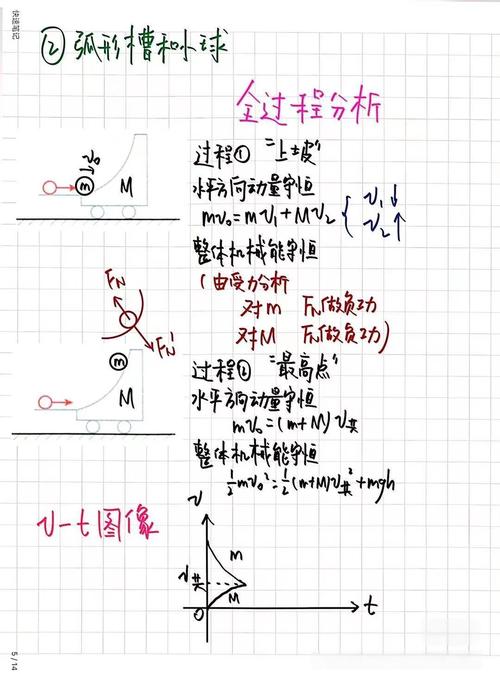 快速笔记
② 弧形槽和小球
全过程分析
v₀
m
M
过程① "上坡"
水平方向动量守恒
mv₀=mv₁+Mv₂ { v₁↓ v₂↑
整体机械能守恒
(由受力分析
对m FN做负功
对M FN'做负功)
FN
FN'
m
M
过程② "最高点"
水平方向动量守恒
mv₀=(m+M)v共
整体机械能守恒
½mv₀²=½(m+M)v共²+mgh
v-t图像
v
m
v共
M
O
t
5/14